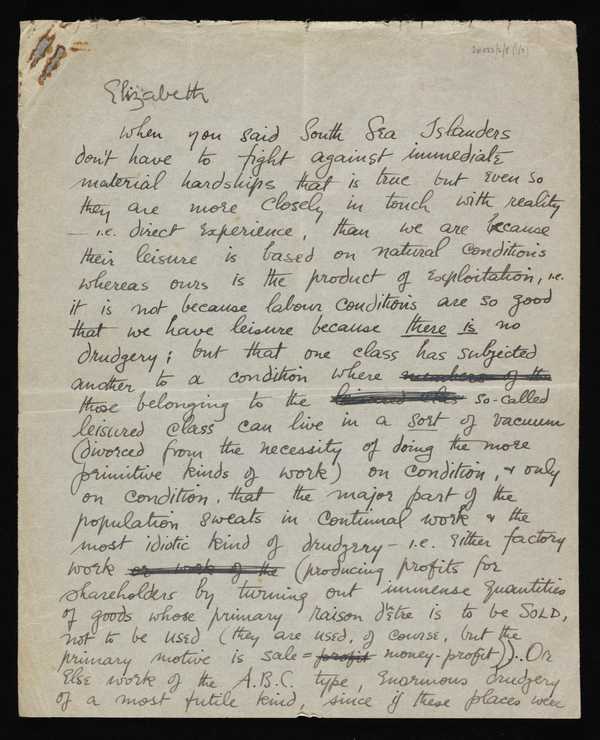 Elizabeth
When you said South Sea Islanders
don't have to fight against immediate
material hardships that is true but even so
they are more closely in touch with reality
— i.e. direct experience, than we are because
their leisure is based on natural conditions
whereas ours is the product of exploitation, i.e.
it is not because labour conditions are so good
that we have leisure because there is no
drudgery; but that one class has subjected
another to a condition where members of the
those belonging to the leisured class so-called
leisured class can live in a sort of vacuum
(divorced from the necessity of doing the more
primitive kinds of work) on condition, & only
on condition, that the major part of the
population sweats in continual work & the
most idiotic kind of drudgery – i.e. either factory
work or work of the (producing profits for
shareholders by turning out immense quantities
of goods whose primary raison d'être is to be SOLD,
not to be used (they are used, of course, but the
primary motive is sale = profit money-profit))... Or
else work of the A.B.C. type, enormous drudgery
of a most futile kind, since if these places were